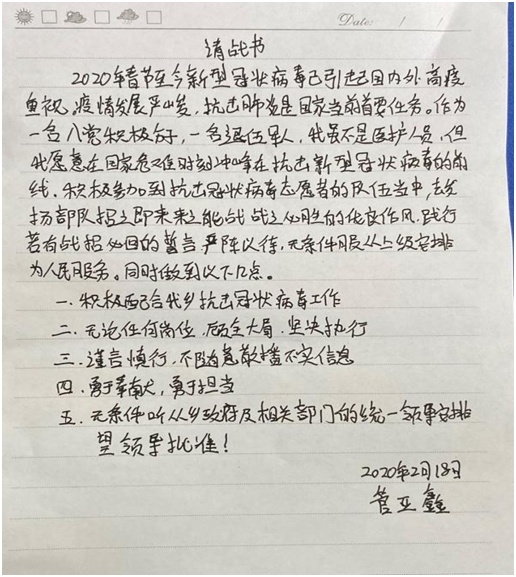 Date: / /
请战书
2020年春节至今新型冠状病毒已引起国内外高度
重视,疫情发展严峻,抗击肺炎是国家当前首要任务。作为
一名入党积极分子,一名退伍军人,我虽不是医护人员,但
我愿意在国家危难时刻冲峰在抗击新型冠状病毒的前
线,积极参加到抗击冠状病毒志愿者的队伍当中,去发
扬部队招之即来来之能战战之必胜的优良作风,践行
若有战招必回的誓言,严阵以待,无条件服从上级安排
为人民服务。同时做到以下几点。
一.积极配合我乡抗击冠状病毒工作
二.无论任何岗位,顾全大局,坚决执行
三.谨言慎行,不随意散播不实信息
四.勇于奉献,勇于担当
五.无条件听从乡政府及相关部门的统一领导安排
望领导批准!
2020年2月18日
管亚鑫